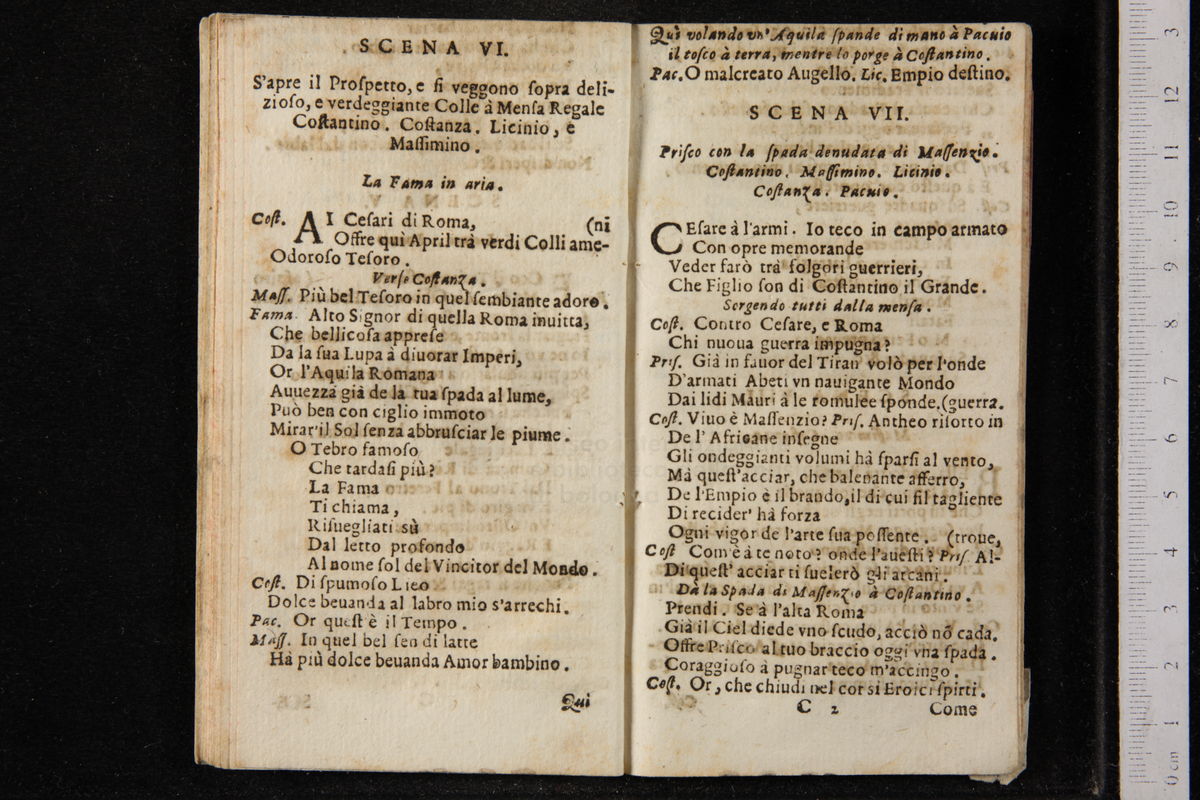 SCENA VI.
S'apre il Proſpetto, e ſi veggono ſopra deli-
zioſo, e verdeggiante Colle à Menſa Regale
Coſtantino. Coſtanza. Licinio, e
Maſſimino.
La Fama in aria.
Coſt. AI Ceſari di Roma, (ni
Offre quì April trà verdi Colli ame-
Odoroſo Teſoro.
Verſo Coſtanza.
Maſſ. Più bel Teſoro in quel ſembiante adoro.
Fama. Alto Signor di quella Roma inuitta,
Che bellicoſa appreſe
Da la ſua Lupa à diuorar Imperi,
Or l'Aquila Romana
Auuezza già de la tua ſpada al lume,
Può ben con ciglio immoto
Mirar'il Sol ſenza abbruſciar le piume.
O Tebro famoſo
Che tardaſi più?
La Fama
Ti chiama,
Riſuegliati sù
Dal letto profondo
Al nome ſol del Vincitor del Mondo.
Coſt. Di ſpumoſo Lieo
Dolce beuanda al labro mio s'arrechi.
Pac. Or queſt è il Tempo.
Maſſ. In quel bel ſen di latte
Hà più dolce beuanda Amor bambino.
Quì
Quì volando vn'Aquila ſpande di mano à Pacuio
il toſco à terra, mentre lo porge à Coſtantino.
Pac. O malcreato Augello. Lic. Empio deſtino.
SCENA VII.
Priſco con la ſpada denudata di Maſſenzio.
Coſtantino. Maſſimino. Licinio.
Coſtanza. Pacuio.
CEſare à l'armi. Io teco in campo armato
Con opre memorande
Veder farò trà folgori guerrieri,
Che Figlio ſon di Coſtantino il Grande.
Sorgendo tutti dalla menſa.
Coſt. Contro Ceſare, e Roma
Chi nuoua guerra impugna?
Priſ. Già in fauor del Tiran volò per l'onde
D'armati Abeti vn nauigante Mondo
Dai lidi Mauri à le romulee ſponde. (guerra.
Coſt. Viuo è Maſſenzio? Priſ. Antheo riſorto in
De l'Africane inſegne
Gli ondeggianti volumi hà ſparſi al vento,
Mà queſt'acciar, che balenante afferro,
De l'Empio è il brando, il di cui fil tagliente
Di recider' hà forza
Ogni vigor de l'arte ſua poſſente. (troue,
Coſt Com'è à te noto? onde l'aueſti? Priſ. Al-
Di queſt' acciar ti ſuelerò gli arcani.
Dà la Spada di Maſſenzio à Coſtantino.
Prendi. Se à l'alta Roma
Già il Ciel diede vno ſcudo, acciò nõ cada.
Offre Priſco al tuo braccio oggi vna ſpada.
Coraggioſo à pugnar teco m'accingo.
Coſt. Or, che chiudi nel cor sì Eroici ſpirti.
C 2 Come
0 cm 1 2 3 4 5 6 7 8 9 10 11 12 13